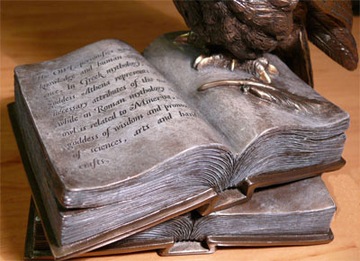 The Owl
knowledge and human
in Greek mythology
goddess Athena represents
necessary attributes of the
while in Roman mythology
owl is related to Minerva,
goddess of wisdom and
of sciences, arts and
crafts.